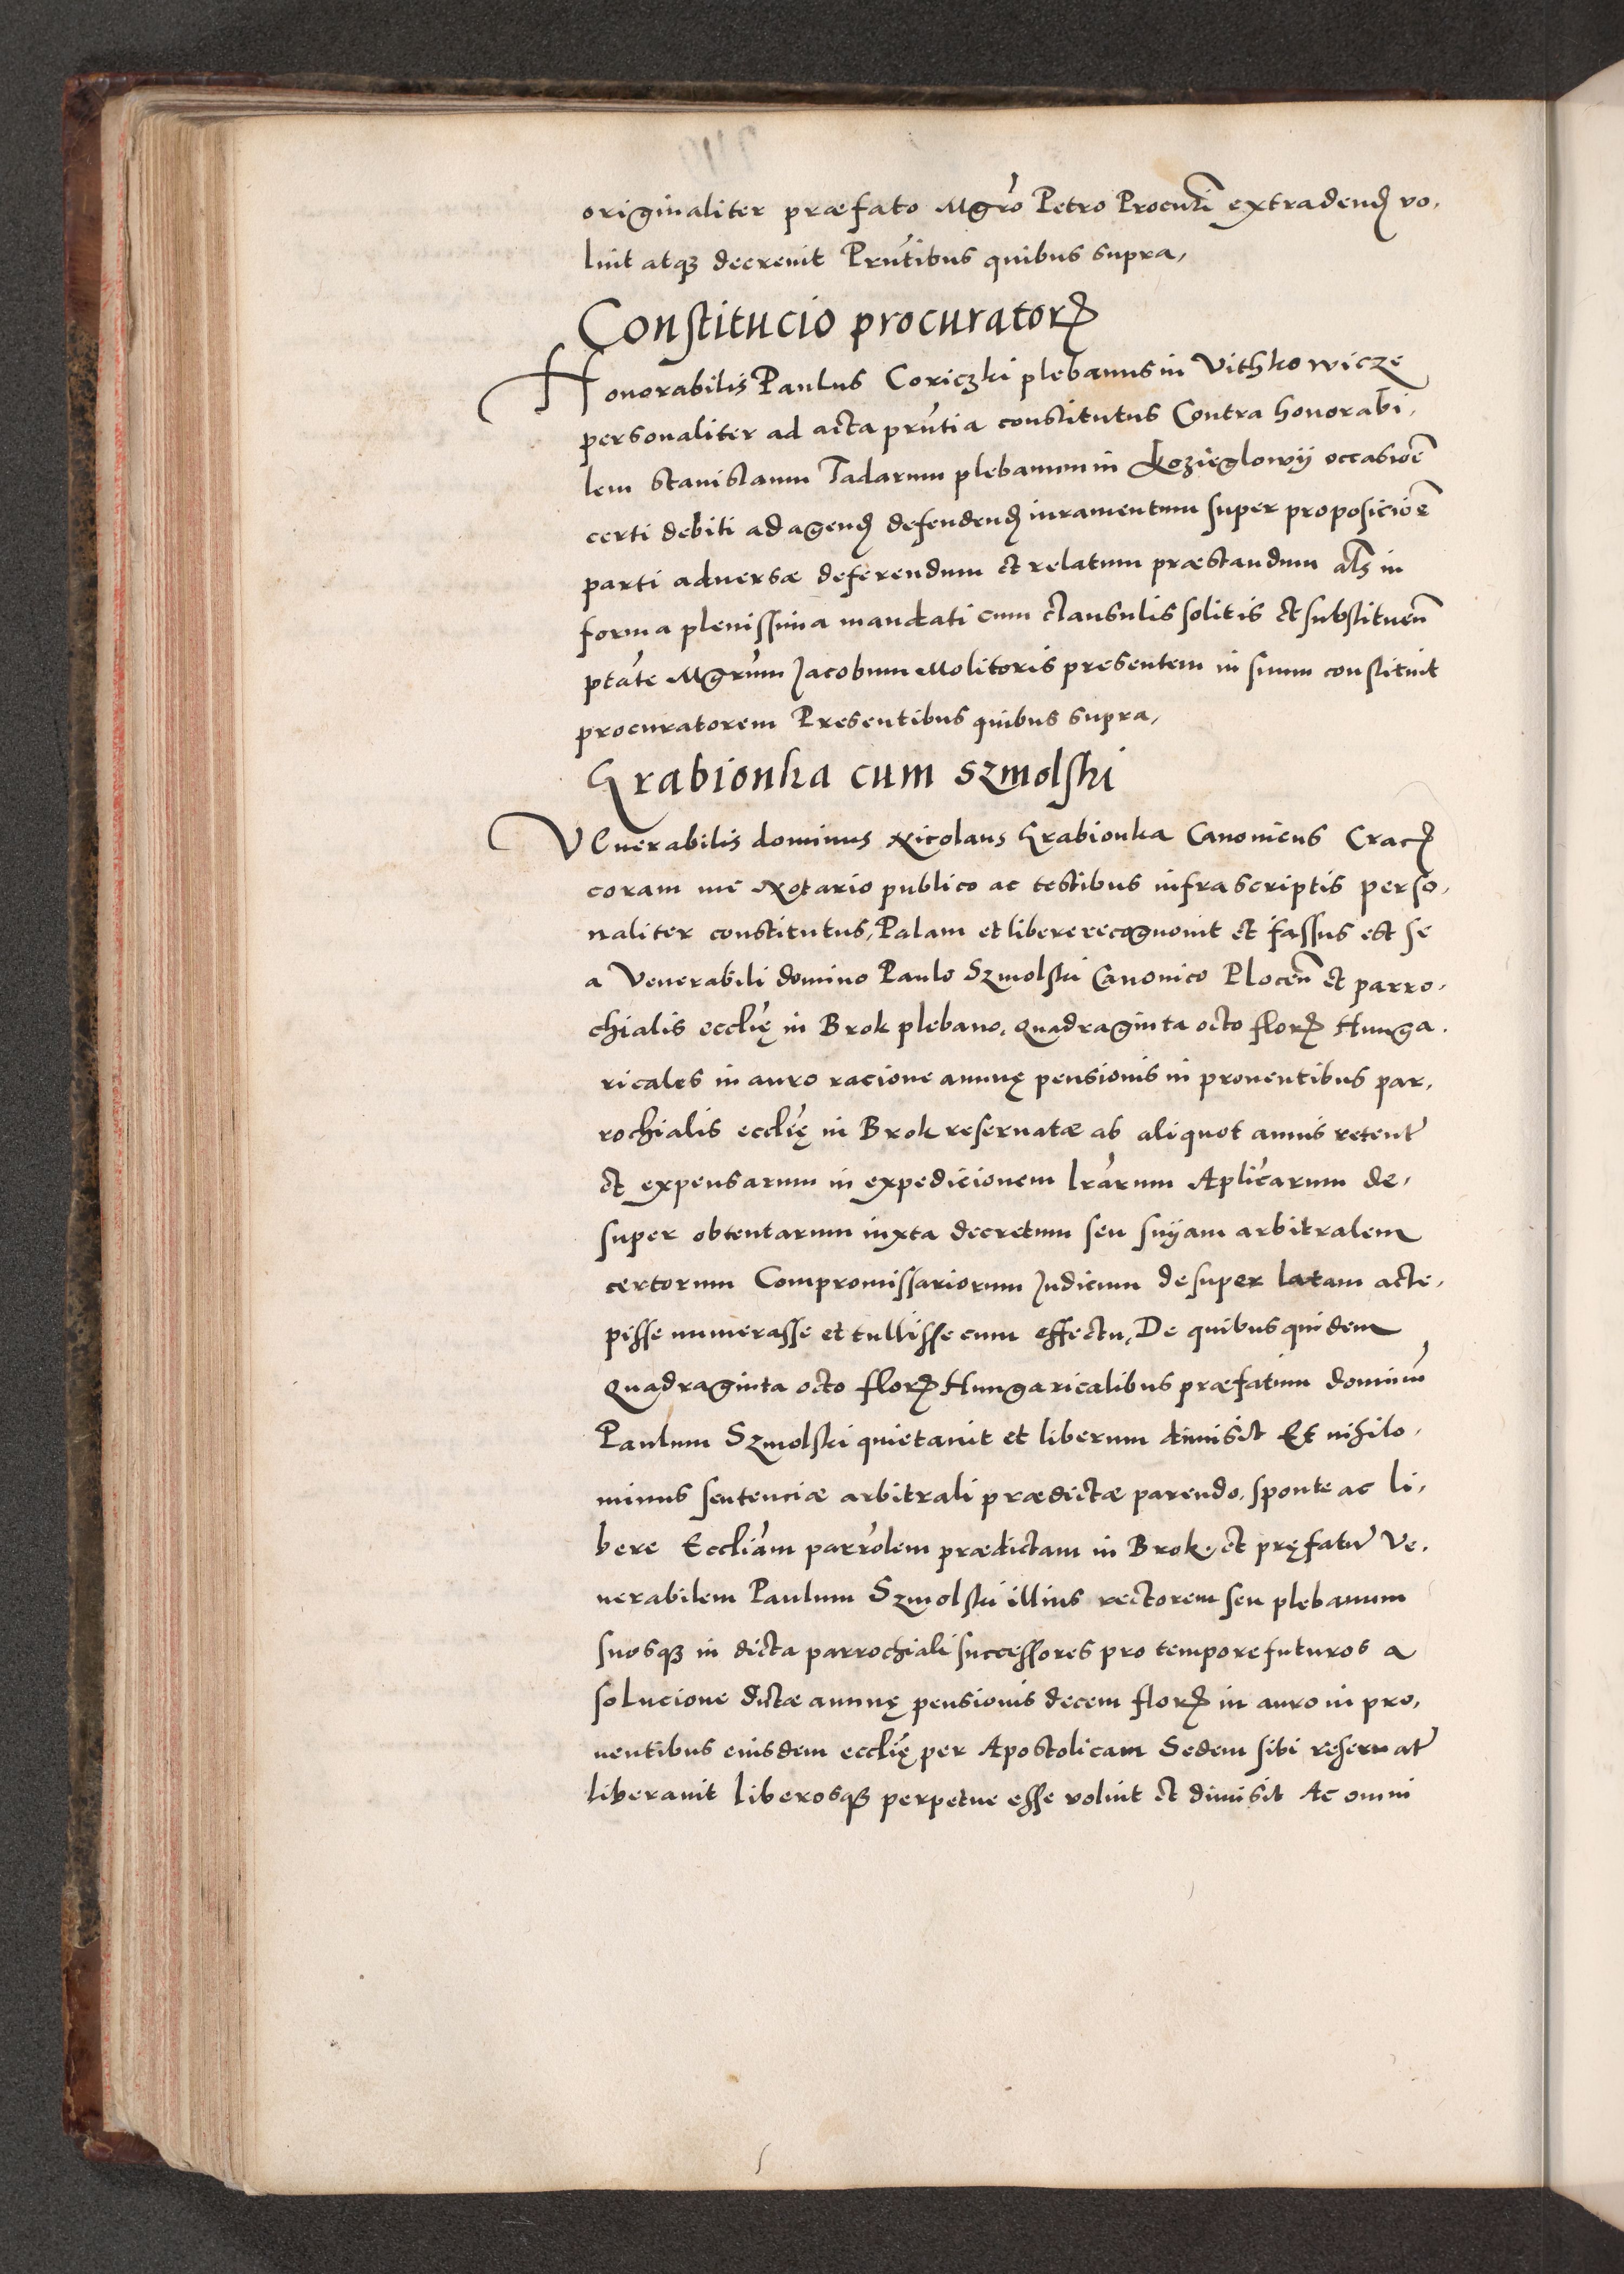 originaliter præfato Mgrō Petro Procur̄i extradend̷ vo,
luit atqꝫ decrevit Prūtibus quibus supra,
Constitucio procuratorꝝ
Honorabilis Paulus Coriczki plebanus in Vithkowicze
personaliter ad acta prūtia constitutus Contra honorabi,
lem Stanislaum Tadarum plebanum in Kozieglowÿ occasiōē
certi debiti ad agend̷ defendend̷ iuramentum super proposiciōē
parti adversæ deferendum et relatum præstandum al̄s in
forma plenissima mandati cum clausulis solitis et substituen̄
ptāte Mgrūm Jacobum Molitoris presentem in suum constituit
procuratorem Presentibus quibus supra,
Grabionka cum Szmolski
VEnerabilis dominus Nicolaus Grabionka Canonicus Cracꝝ
coram me Notario publico ac testibus infrascriptis perso,
naliter constitutus, Palam et libere recognovit et fassus est se
a Venerabili domino Paulo Szmolski Canonico Plocen̄ et parro,
chialis ecclīę in Brok plebano, quadraginta octo florꝝ Hunga,
ricales in auro racione annuę pensionis in proventibus par,
rochialis ecclīę in Brok reservatæ ab aliquot annis retent̄
et expensarum in expedicionem lrārum Aplīcarum de,
super obtentarum iuxta decretum seu snÿam arbitralem
certorum Compromissariorum Judicum desuper latam acce,
pisse numerasse et tullisse cum effectu, De quibus quidem
quadraginta octo florꝝ Hungaricalibus præfatum dominūm
Paulum Szmolski quietavit et liberum dimisit Et nihilo,
minus sentenciæ arbitrali prædictæ parendo, sponte ac li,
bere Ecclīam parrōlem prædictam in Brok, et pręfatū Ve,
nerabilem Paulum Szmolski illius rectorem seu plebanum
suosqꝫ in dicta parrochiali successores pro tempore futuros a
solucione dictæ annuę pensionis decem florꝝ in auro in pro,
ventibus eiusdem ecclīę per Apostolicam Sedem sibi reservat̄
liberavit liberosqꝫ perpetue esse voluit et dimisit Ac omni